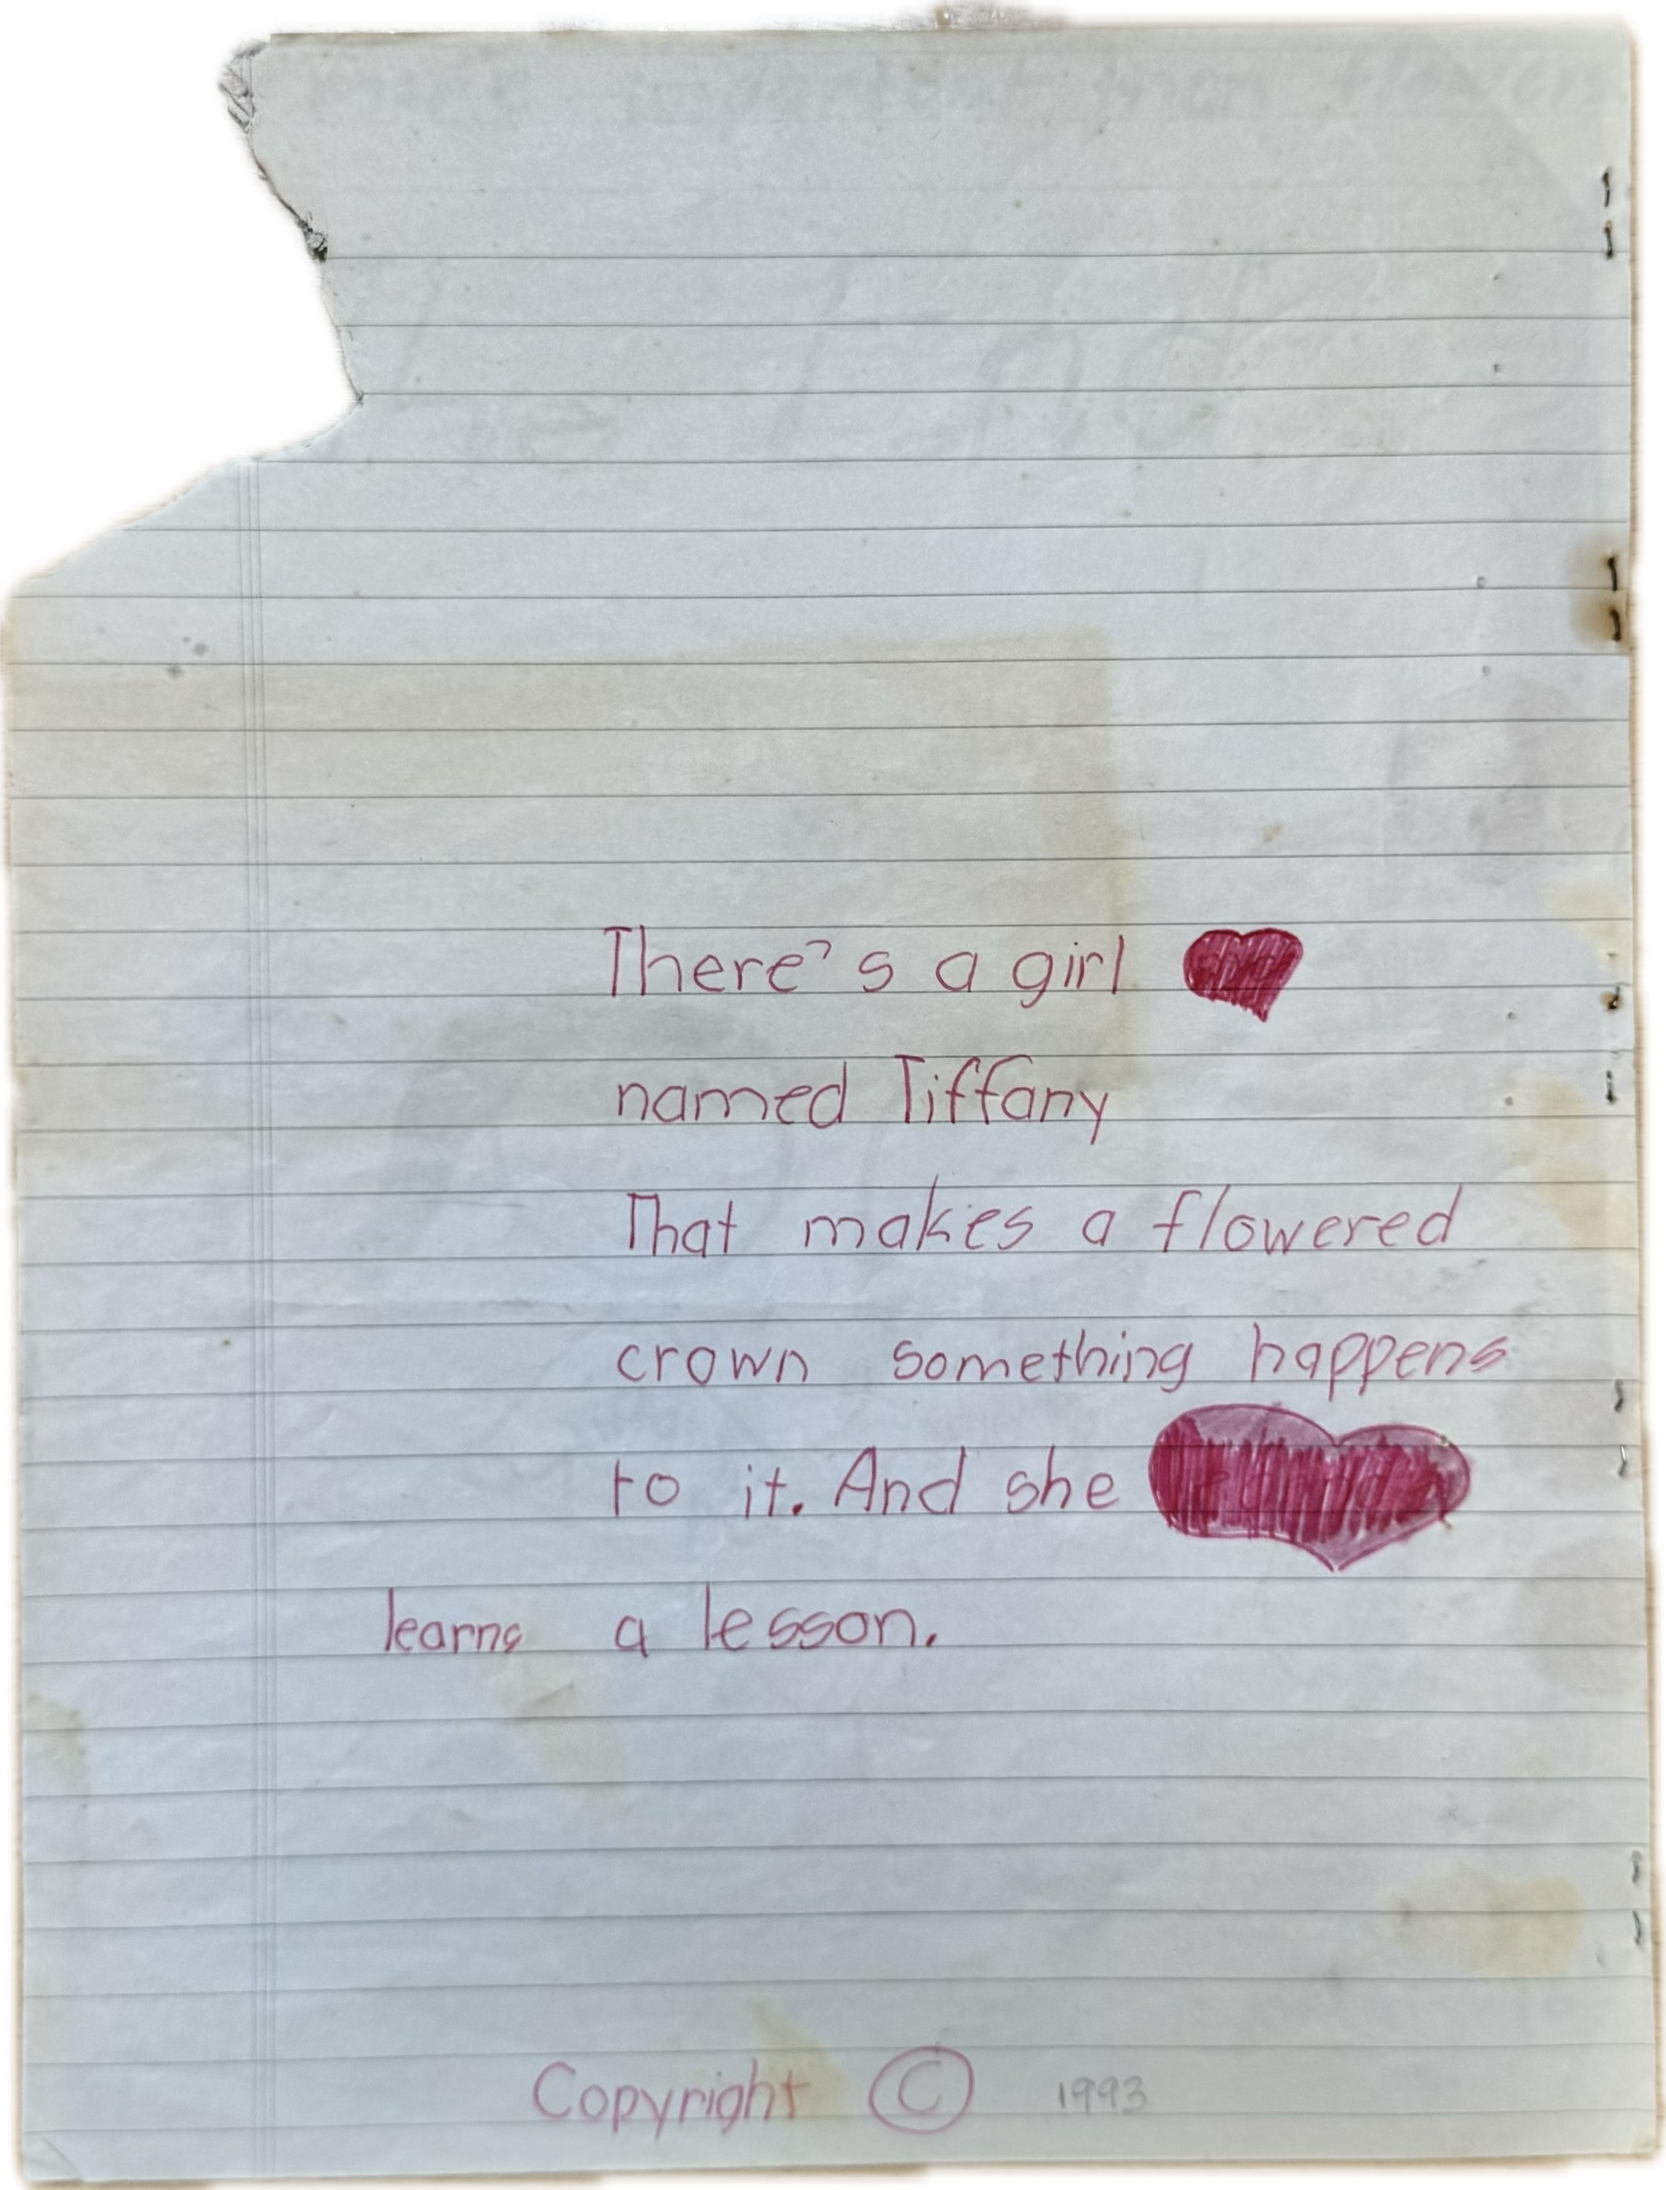 There's a girl
named Tiffany
That makes a flowered
crown something happens
to it. And she
learns a lesson.
Copyright © 1993